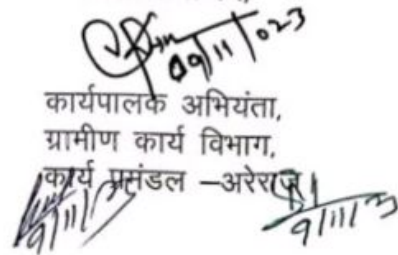 09/11/023
कार्यपालक अभियंता,
ग्रामीण कार्य विभाग,
कार्य प्रमंडल –अरेराज
9/11/23
9/11/23